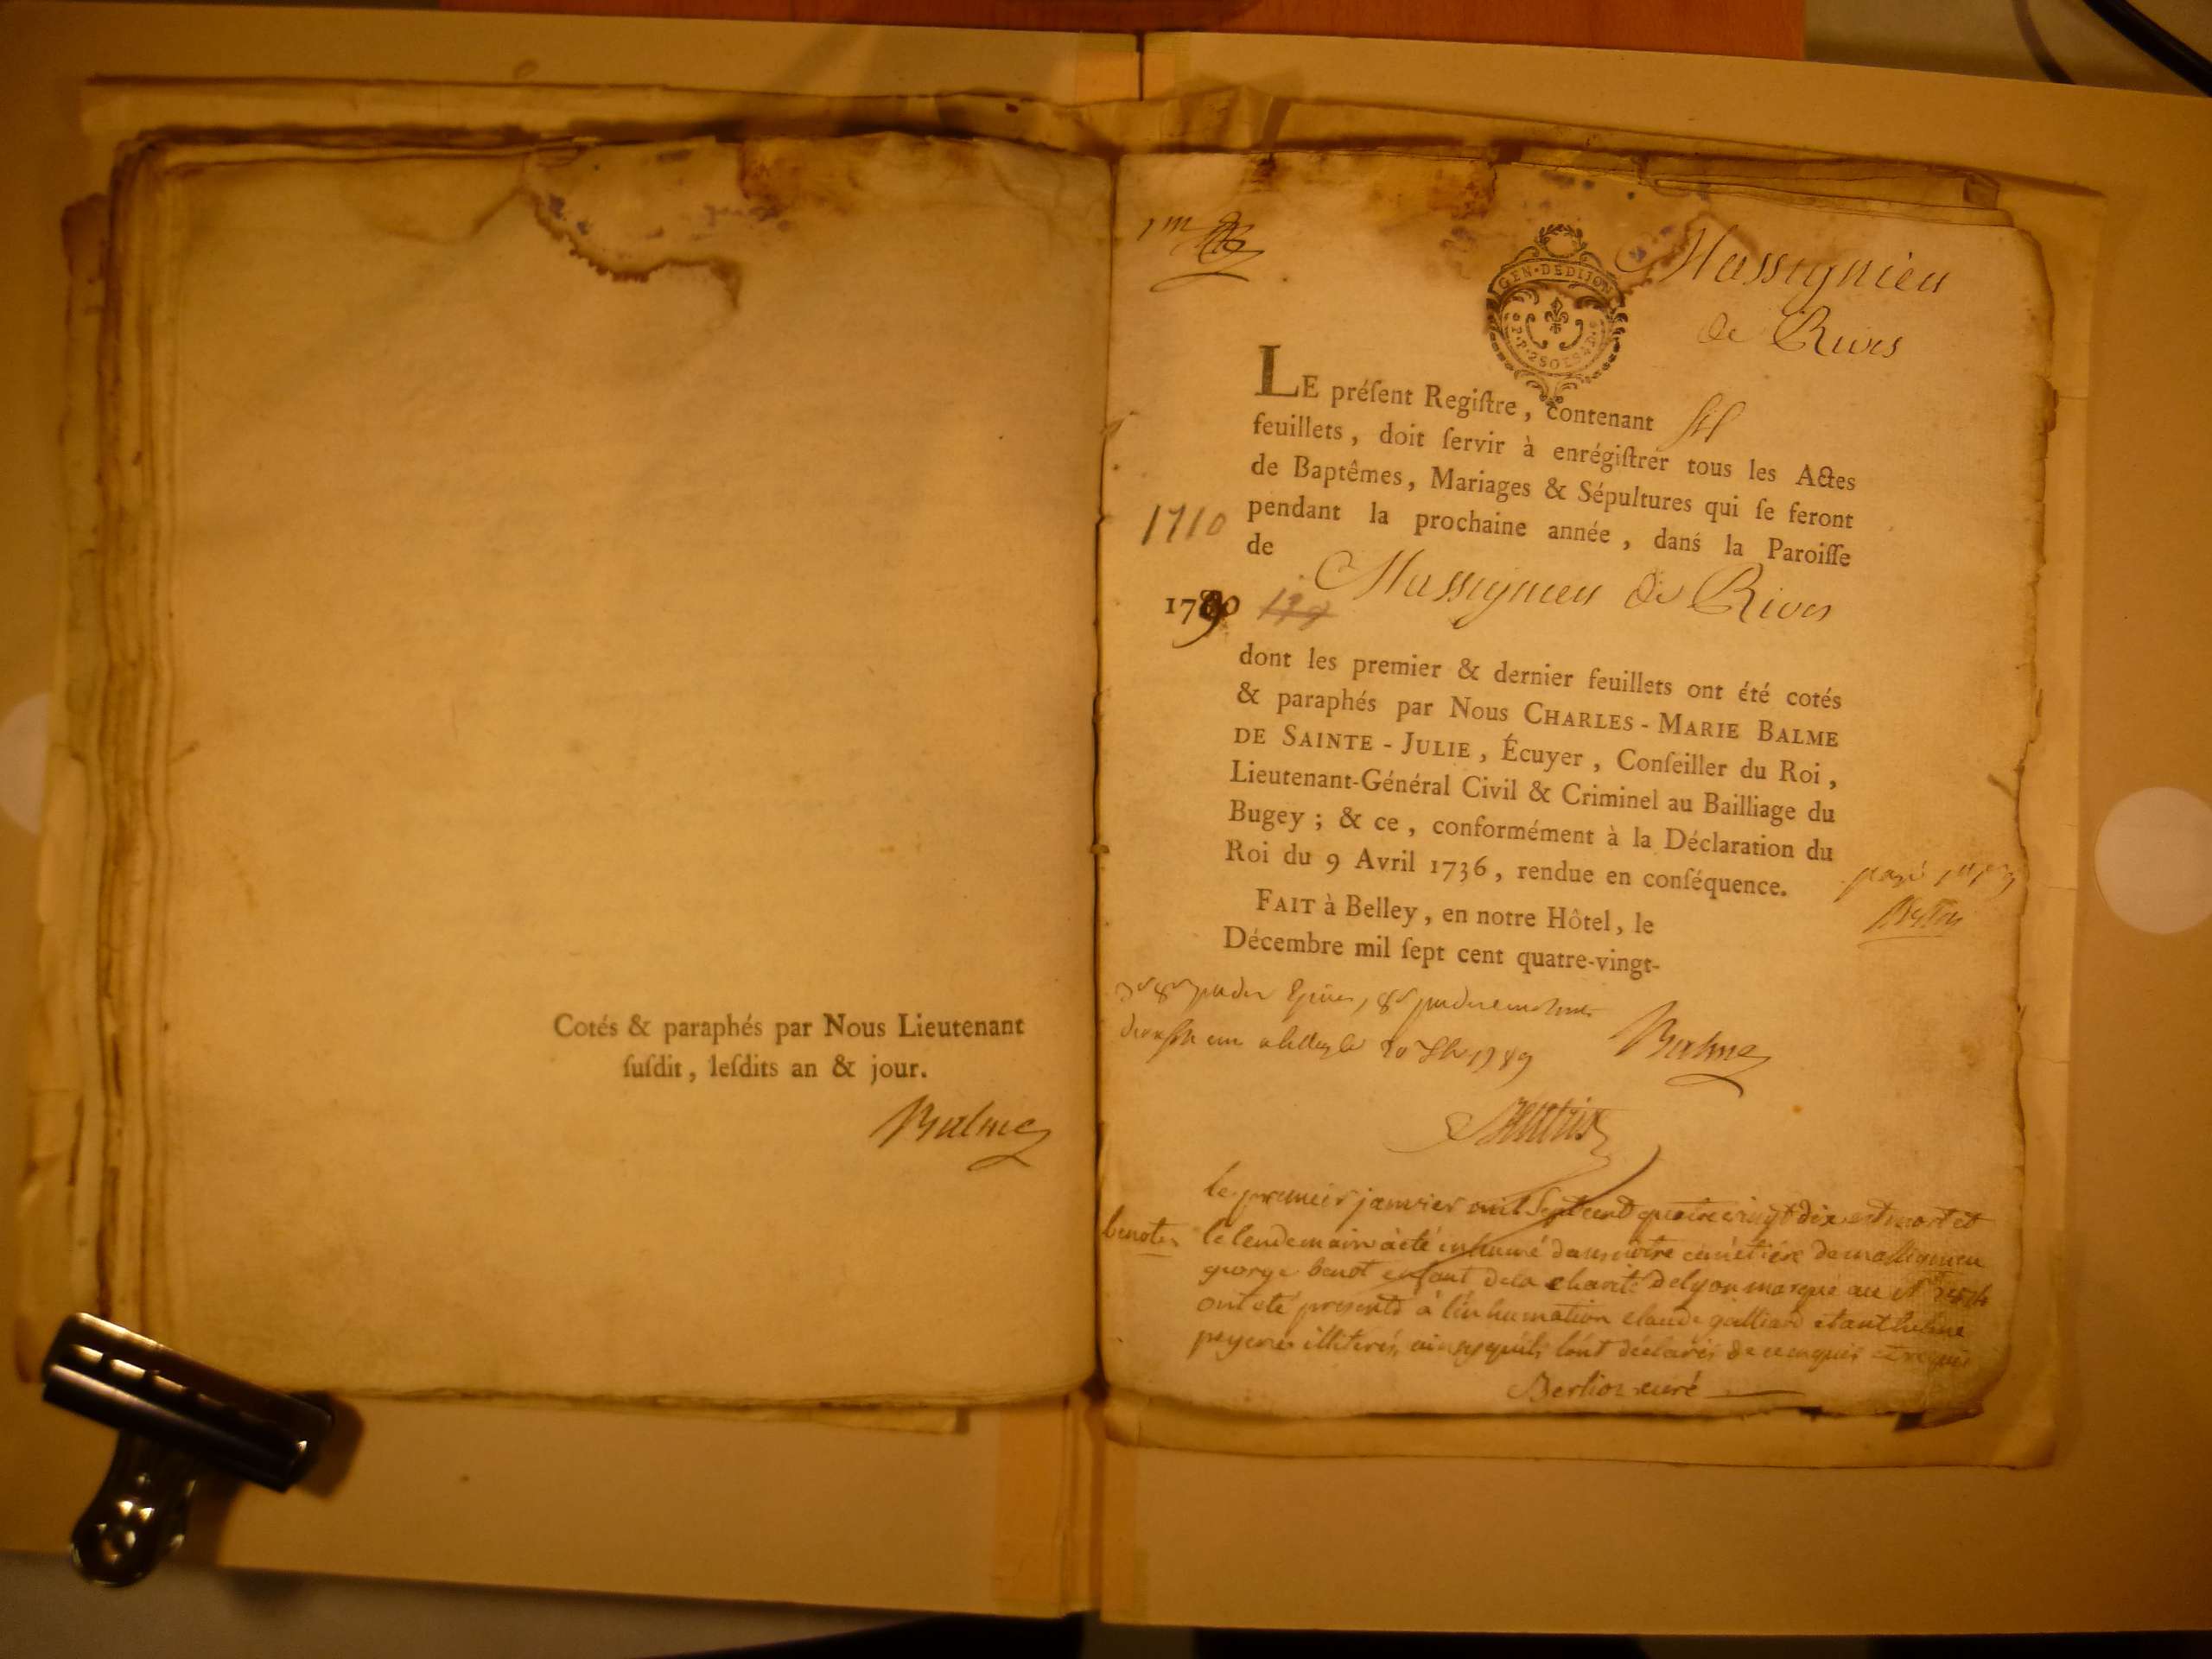 Cotés & paraphés par Nous Lieutenant
ſuſdit, leſdits an & jour.
Balme
1er
Massignieu
de Rives
GEN·DEDIJON
LE préſent Regiſtre, contenant six
feuillets, doit ſervir à enrégiſtrer tous les Actes
de Baptêmes, Mariages & Sépultures qui ſe feront
pendant la prochaine année, dans la Paroiſſe
1710
de Massignieu de Rives
1790
dont les premier & dernier feuillets ont été cotés
& paraphés par Nous CHARLES-MARIE BALME
DE SAINTE-JULIE, Écuyer, Conſeiller du Roi,
Lieutenant-Général Civil & Criminel au Bailliage du
Bugey; & ce, conformément à la Déclaration du
Roi du 9 Avril 1736, rendue en conſéquence.
FAIT à Belley, en notre Hôtel, le
Décembre mil ſept cent quatre-vingt-
a belley le 20 1789
Balme
le premier janvier mil sept cent quatre vingt dix est mort et
benot le lendemain a été inhumé dans notre cimetière de massignieu
george benot enfant de la charité de lyon marque au N
ont été presents à l'inhumation claude galliard et anthelme
peysson illiterés, ainsy qu'ils l'ont déclarés de ce enquis et requis
Berlioz curé